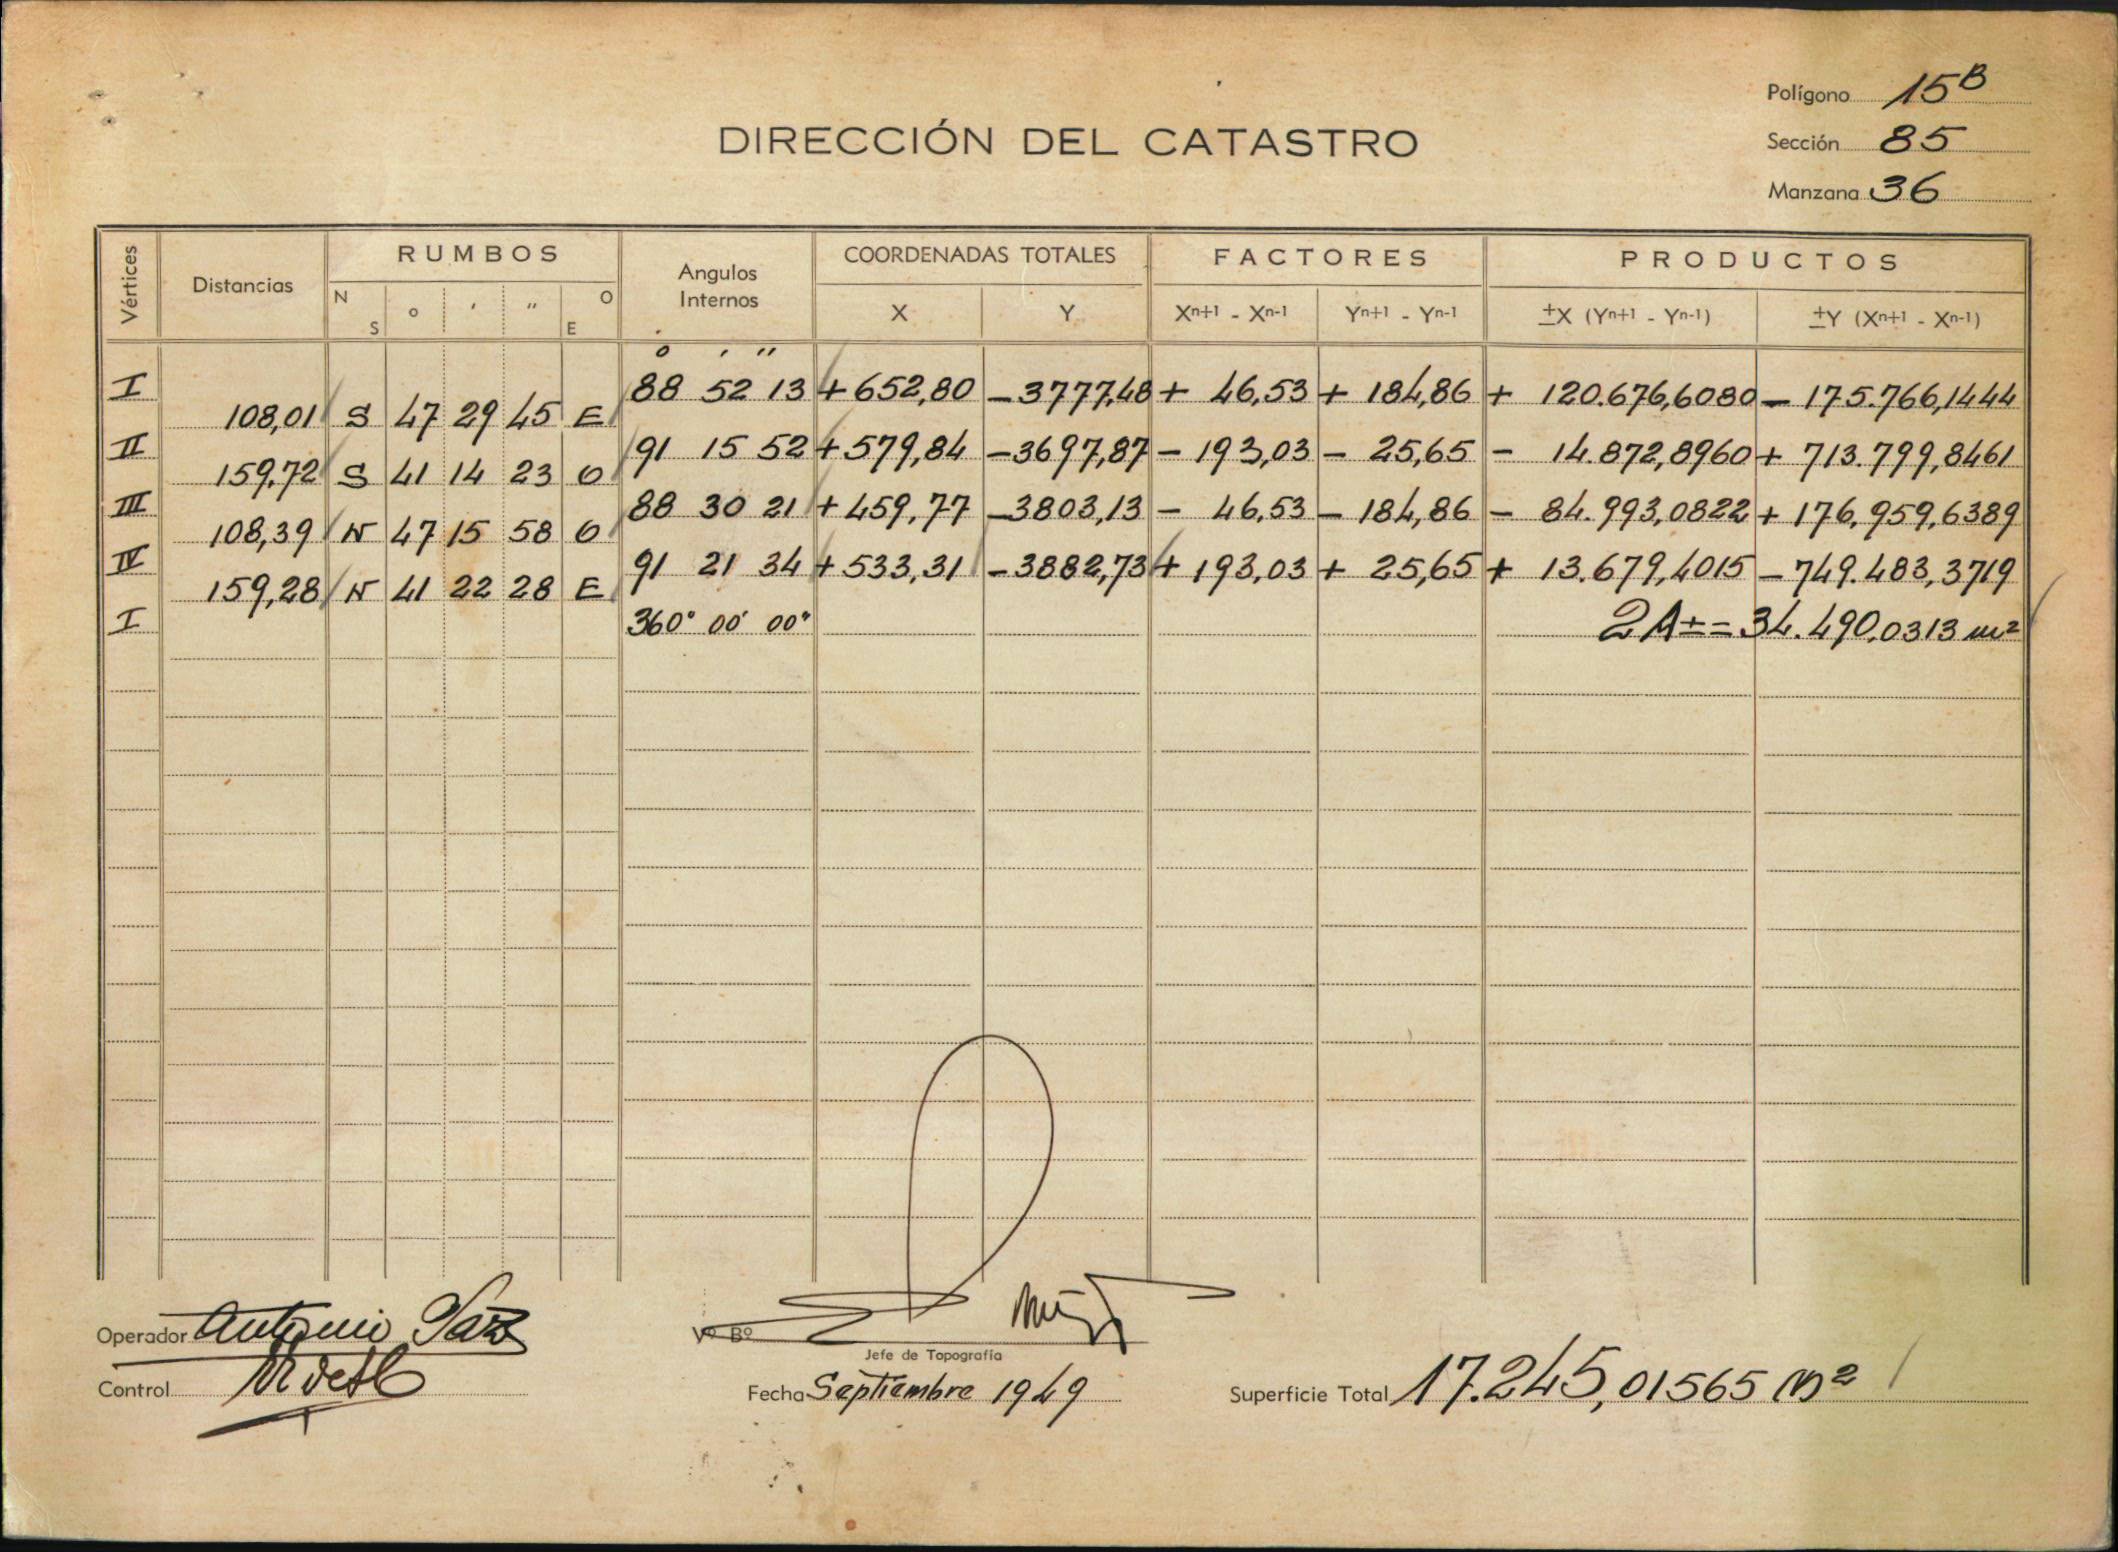 Polígono 15B
DIRECCIÓN DEL CATASTRO
Sección 85
Manzana 36
Vértices Distancias RUMBOS Angulos Internos COORDENADAS TOTALES FACTORES PRODUCTOS
N S ° ' " O E X Y Xn+1 - Xn-1 Yn+1 - Yn-1 ±X (Yn+1 - Yn-1) ±Y (Xn+1 - Xn-1)
° ' "
I 88 52 13 +652,80 -3777,48 + 46,53 + 184,86 + 120.676,6080 - 175.766,1444
108,01 S 47 29 45 E
II 91 15 52 +579,84 -3697,87 - 193,03 - 25,65 - 14.872,8960 + 713.799,8461
159,72 S 41 14 23 O
III 88 30 21 +459,77 -3803,13 - 46,53 - 184,86 - 84.993,0822 + 176,959,6389
108,39 N 47 15 58 O
IV 91 21 34 +533,31 -3882,73 + 193,03 + 25,65 + 13.679,4015 - 749.483,3719
159,28 N 41 22 28 E
I 360° 00' 00" 2A± = 34.490,0313 m²
Operador Antonio
Vº Bº
Jefe de Topografía
Control
Fecha Septiembre 1949
Superficie Total 17.245,01565 m²